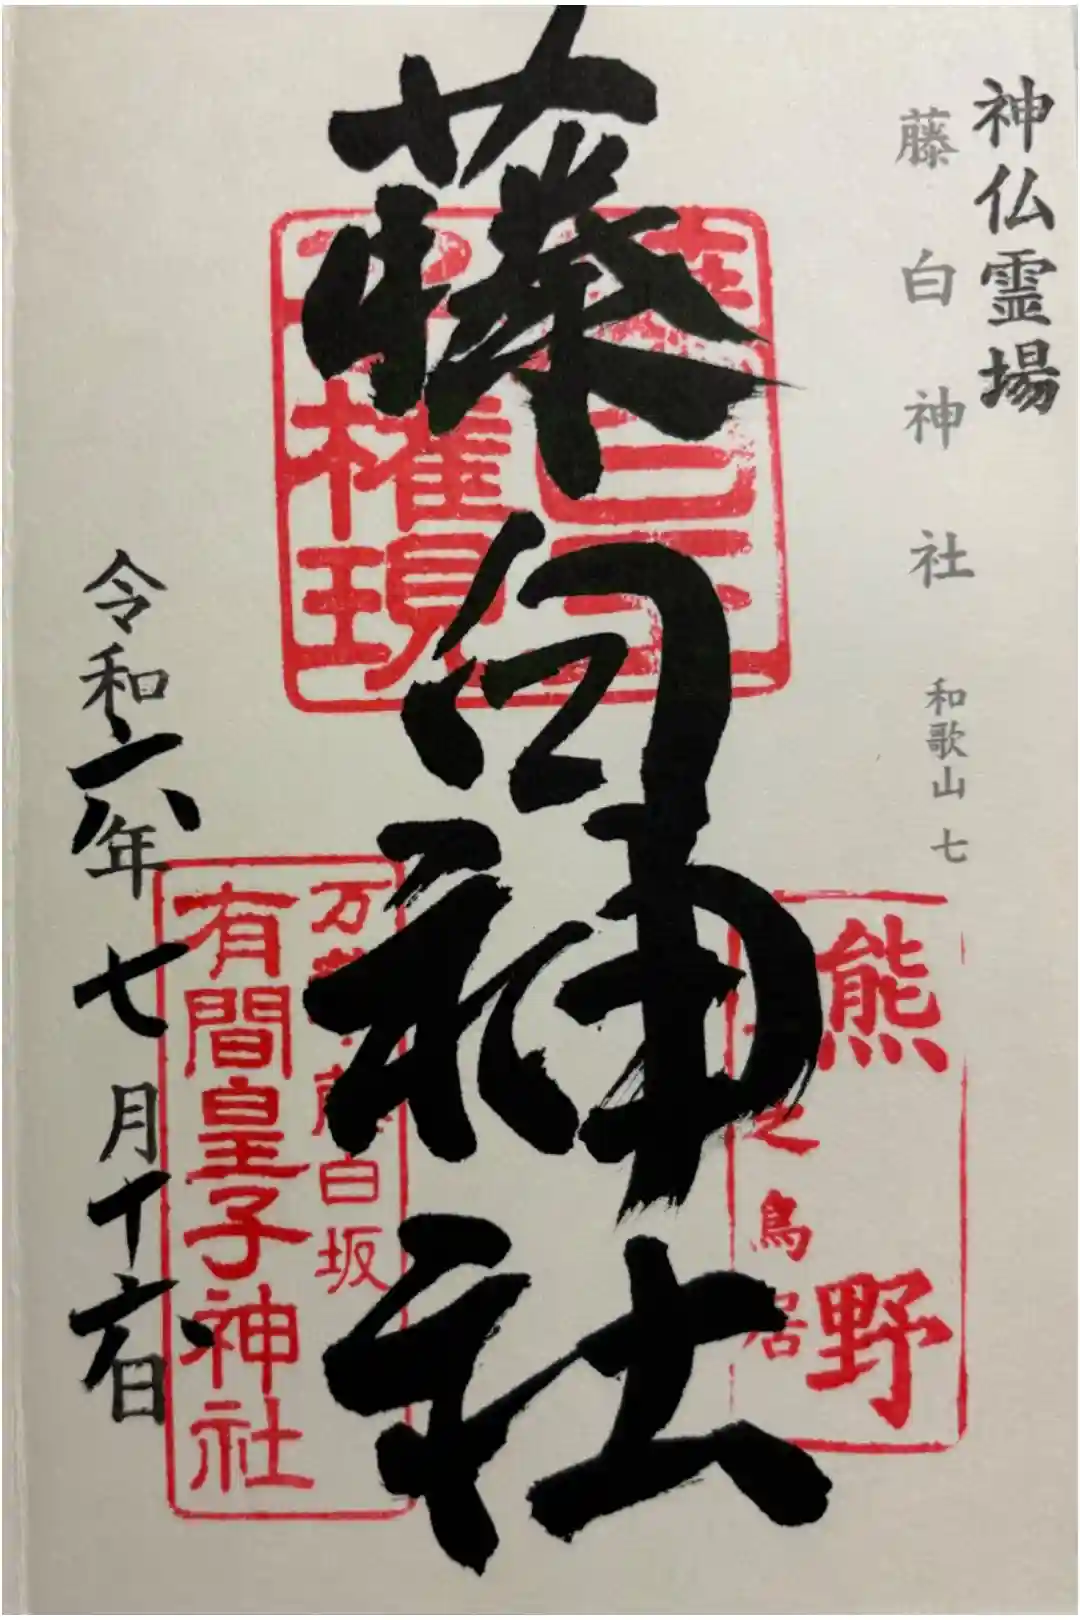 神仏霊場
藤白神社 和歌山 七
藤白神社
権現
熊野
之鳥居
万 藤白坂
有間皇子神社
令和六年七月十六日